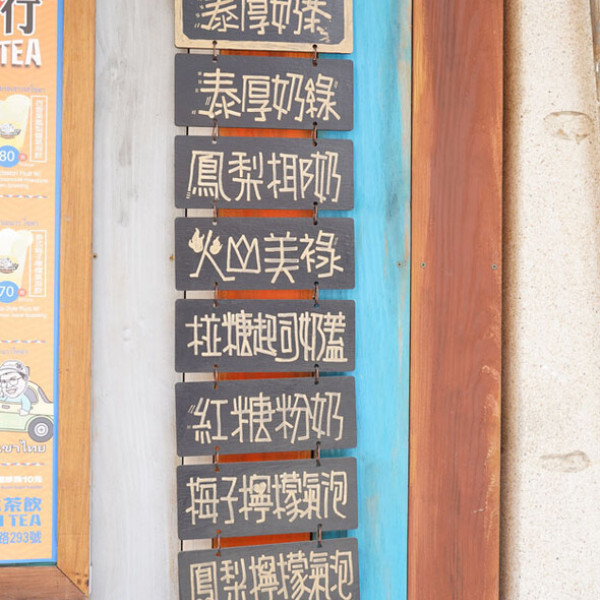 行
TEA
80
70
茶飲
TEA
路293號
泰厚奶茶
泰厚奶綠
鳳梨椰奶
火山美祿
椪糖起司奶蓋
紅糖粉奶
梅子檸檬氣泡
鳳梨檸檬氣泡